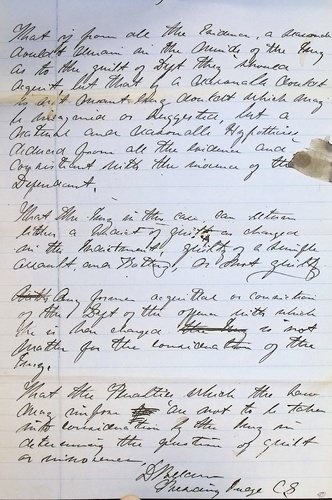 That if from all the Evidence, a reasonable
doubt remain in the minds of the Jury
as to the guilt of Deft they should
acquit, but that if a reasonable doubt
is not meant any doubt which may
be imagined or suggested, but a
natural and reasonable Hypothesis
deduced from all the evidence and
consistent with the inocence of the
Defendant.
That the Jury in this case, can return
either a verdict of guilty as charged
in the Indictment, guilty of a simple
assault and Battery, or not guilty
Any former acquittal or conviction
of the Deft of the offence with which
he is here charged is not
matter for the consideration of the
Jury.
That the Penalties which the law
may are not to be taken
into consideration by the Jury in
determining the question of guilt
or innocence
Presiding Judge C.C.